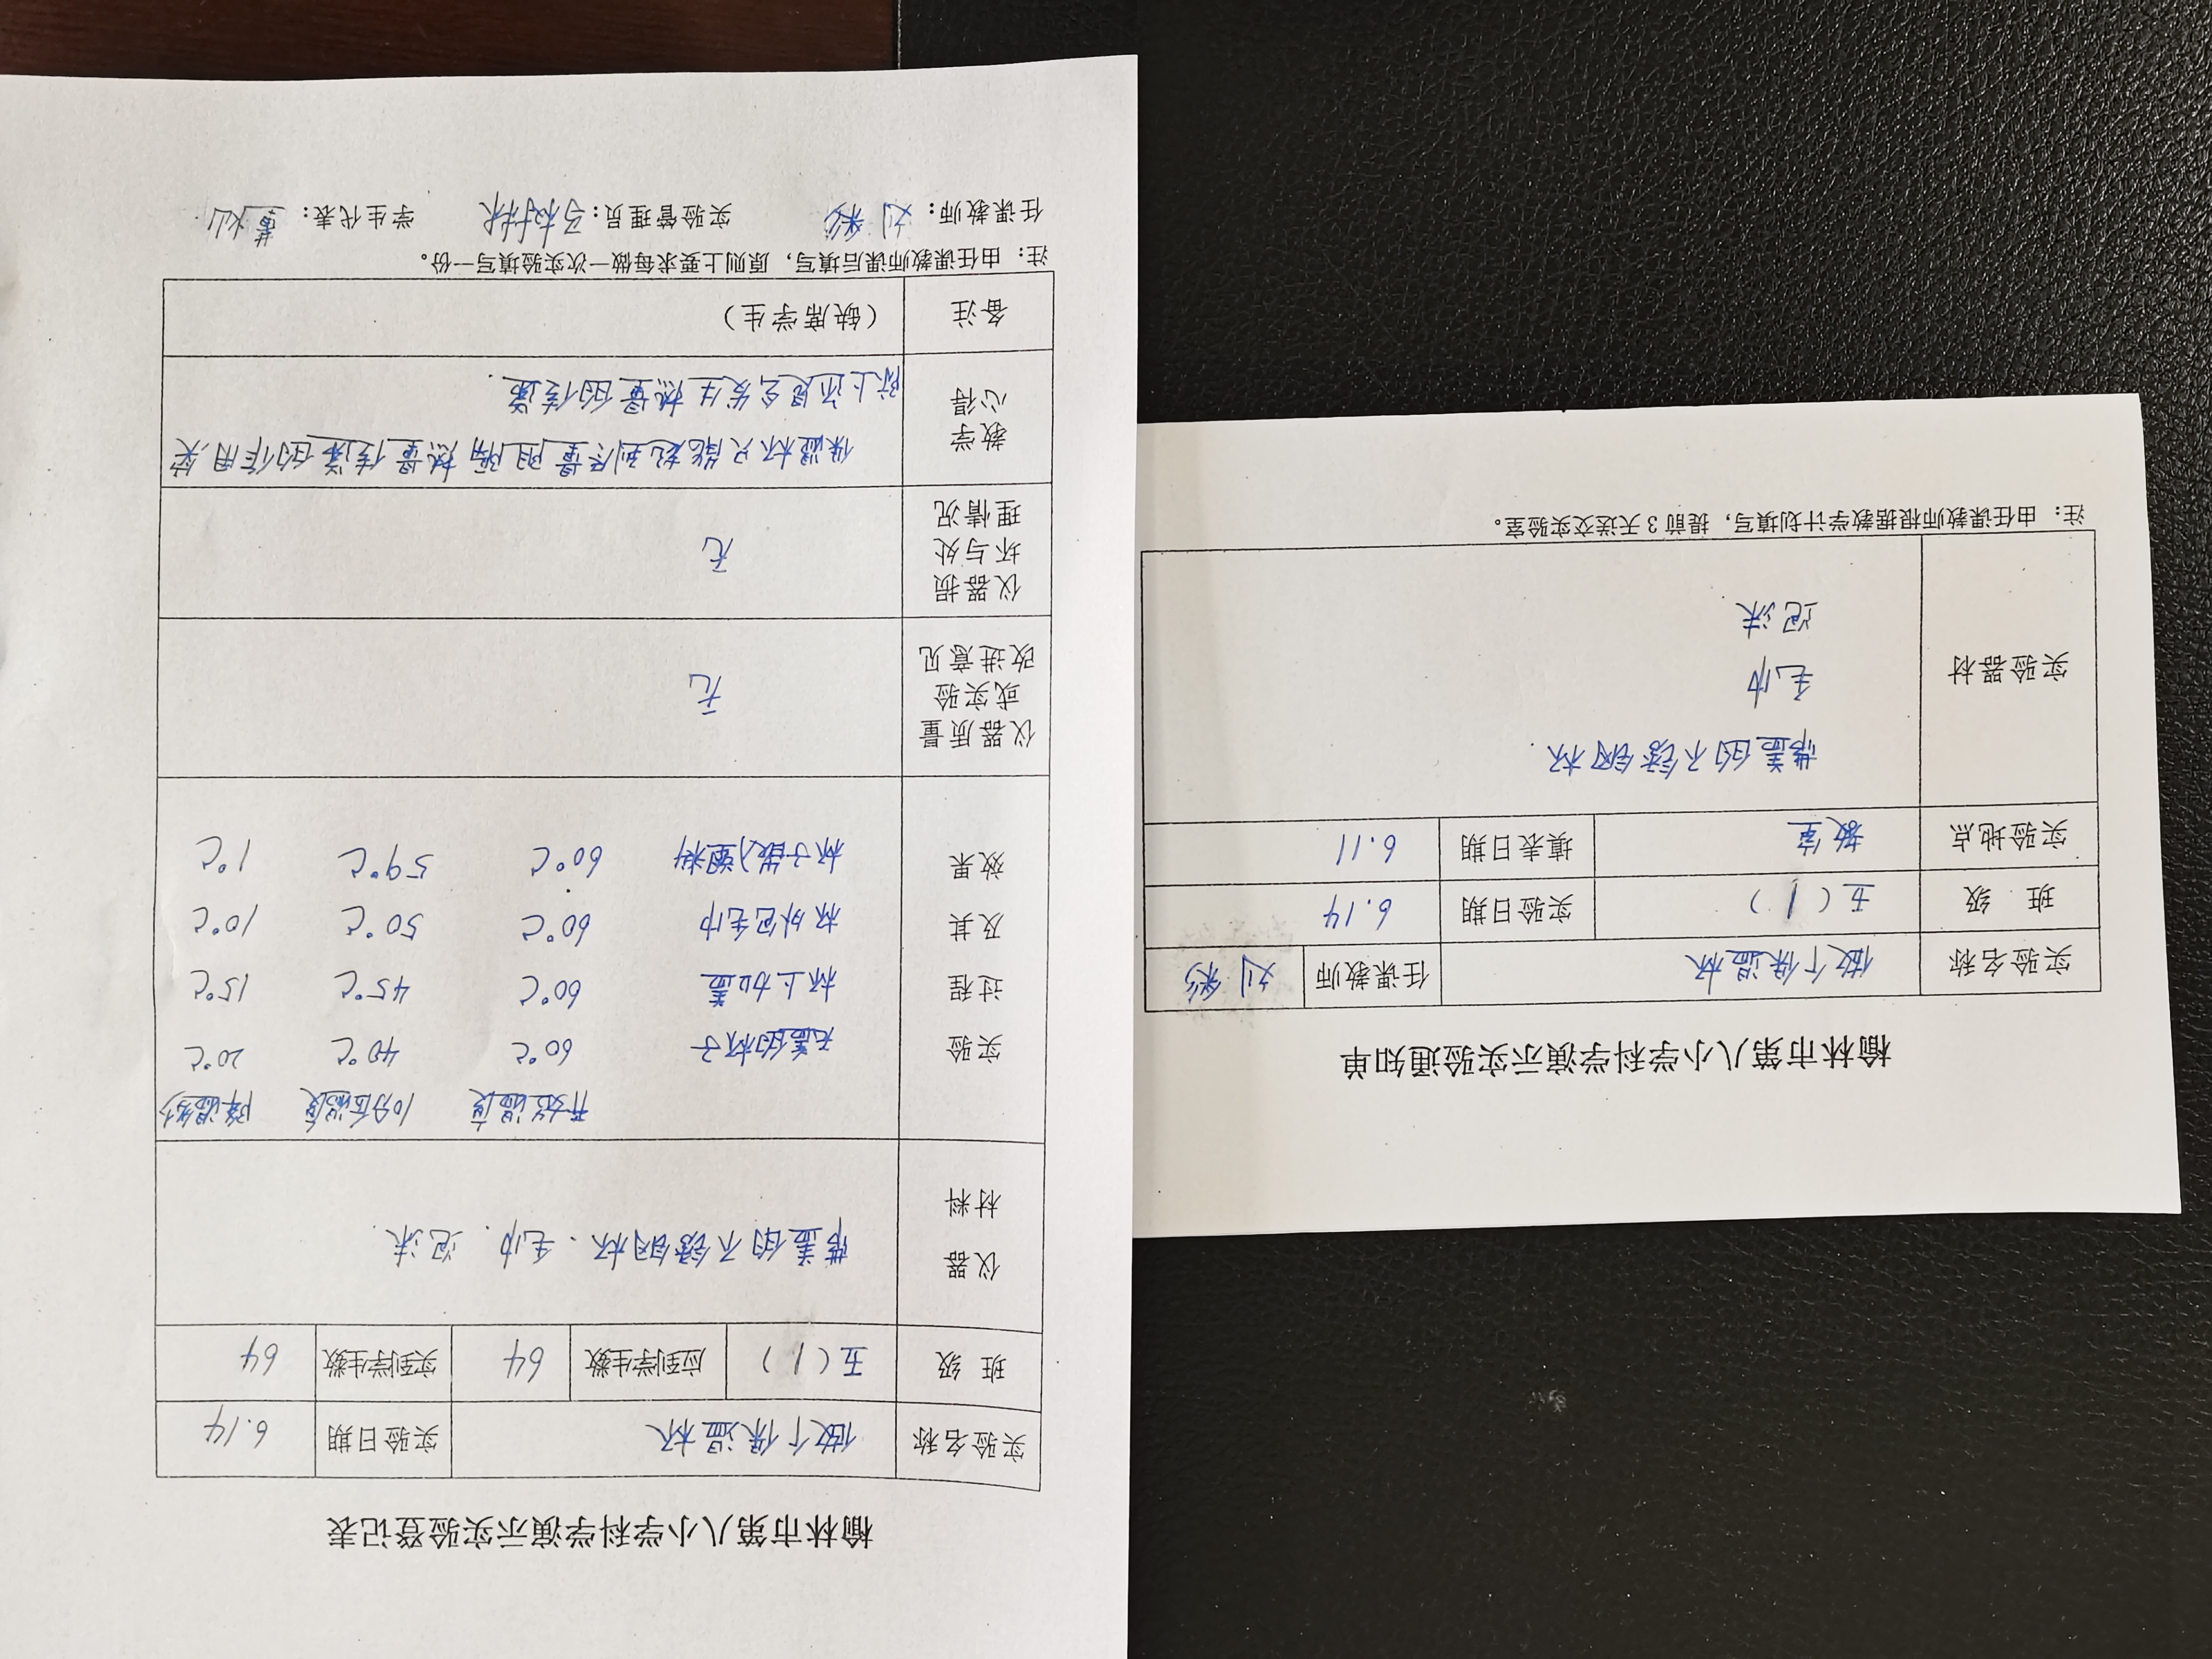 榆林市第八小学科学演示实验通知单
实验名称 做个保温杯 任课教师 刘彩
班 级 五(1) 实验日期 6.14
实验地点 教室 填表日期 6.11
实验器材 带盖的不锈钢杯.
毛巾
泡沫
注：由任课教师根据教学计划填写，提前3天送交实验室。
榆林市第八小学科学演示实验登记表
实验名称 做个保温杯 实验日期 6.14
班 级 五(1) 应到学生数 64 实到学生数 64
仪器材料 带盖的不锈钢杯. 毛巾. 泡沫.
实验过程及其效果
开始温度 10分后温度 降温多少
无盖的杯子 60℃ 40℃ 20℃
杯上加盖 60℃ 45℃ 15℃
杯外包毛巾 60℃ 50℃ 10℃
杯子嵌入塑料 60℃ 59℃ 1℃
仪器质量或实验改进意见 无
仪器损坏与处理情况 无
教学心得 保温杯只能起到尽量阻隔热量传递的作用实
际上还是会发生热量的传递.
备注 （缺席学生）
注：由任课教师课后填写，原则上要求每做一次实验填写一份。
任课教师：刘彩 实验管理员：马树林 学生代表：